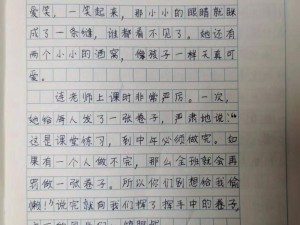 爱笑。一笑起来，那小小的眼睛就眯
成了一条缝，谁都看不见了。她还有
两个小小的酒窝，像孩子一样天真可
爱。
该老师上课时非常严厉。一次，
她给每人发了一张卷子，严肃地说："
这是课堂练习，到中午必须做完。如
果有一个人做不完，那么全班就会再
罚做一张卷子。所以你们别想给我偷
懒！"说完就向我们挥了挥手中的卷子，